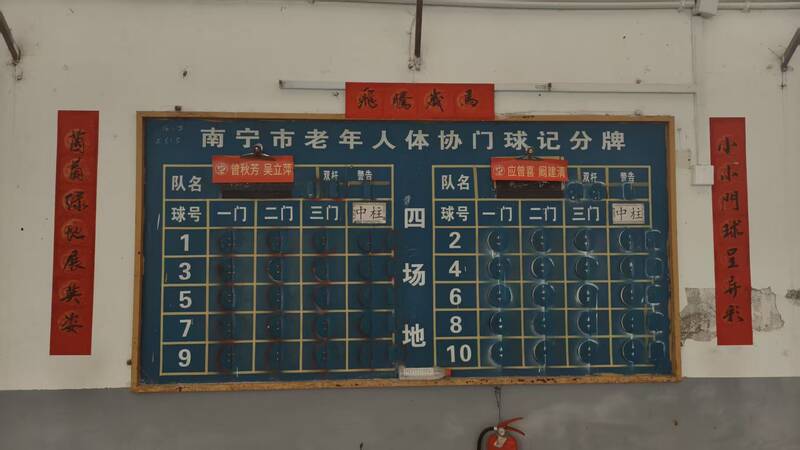 飛騰歲馬
茵茵绿地展英姿
小小門球呈奔形
南宁市老年人体协门球记分牌
四场地
队名 曾秋芳 吴立萍 双杆 警告
球号 一门 二门 三门 中柱
1
3
5
7
9
队名 应曾喜 阚建清 双杆 警告
球号 一门 二门 三门 中柱
2
4
6
8
10